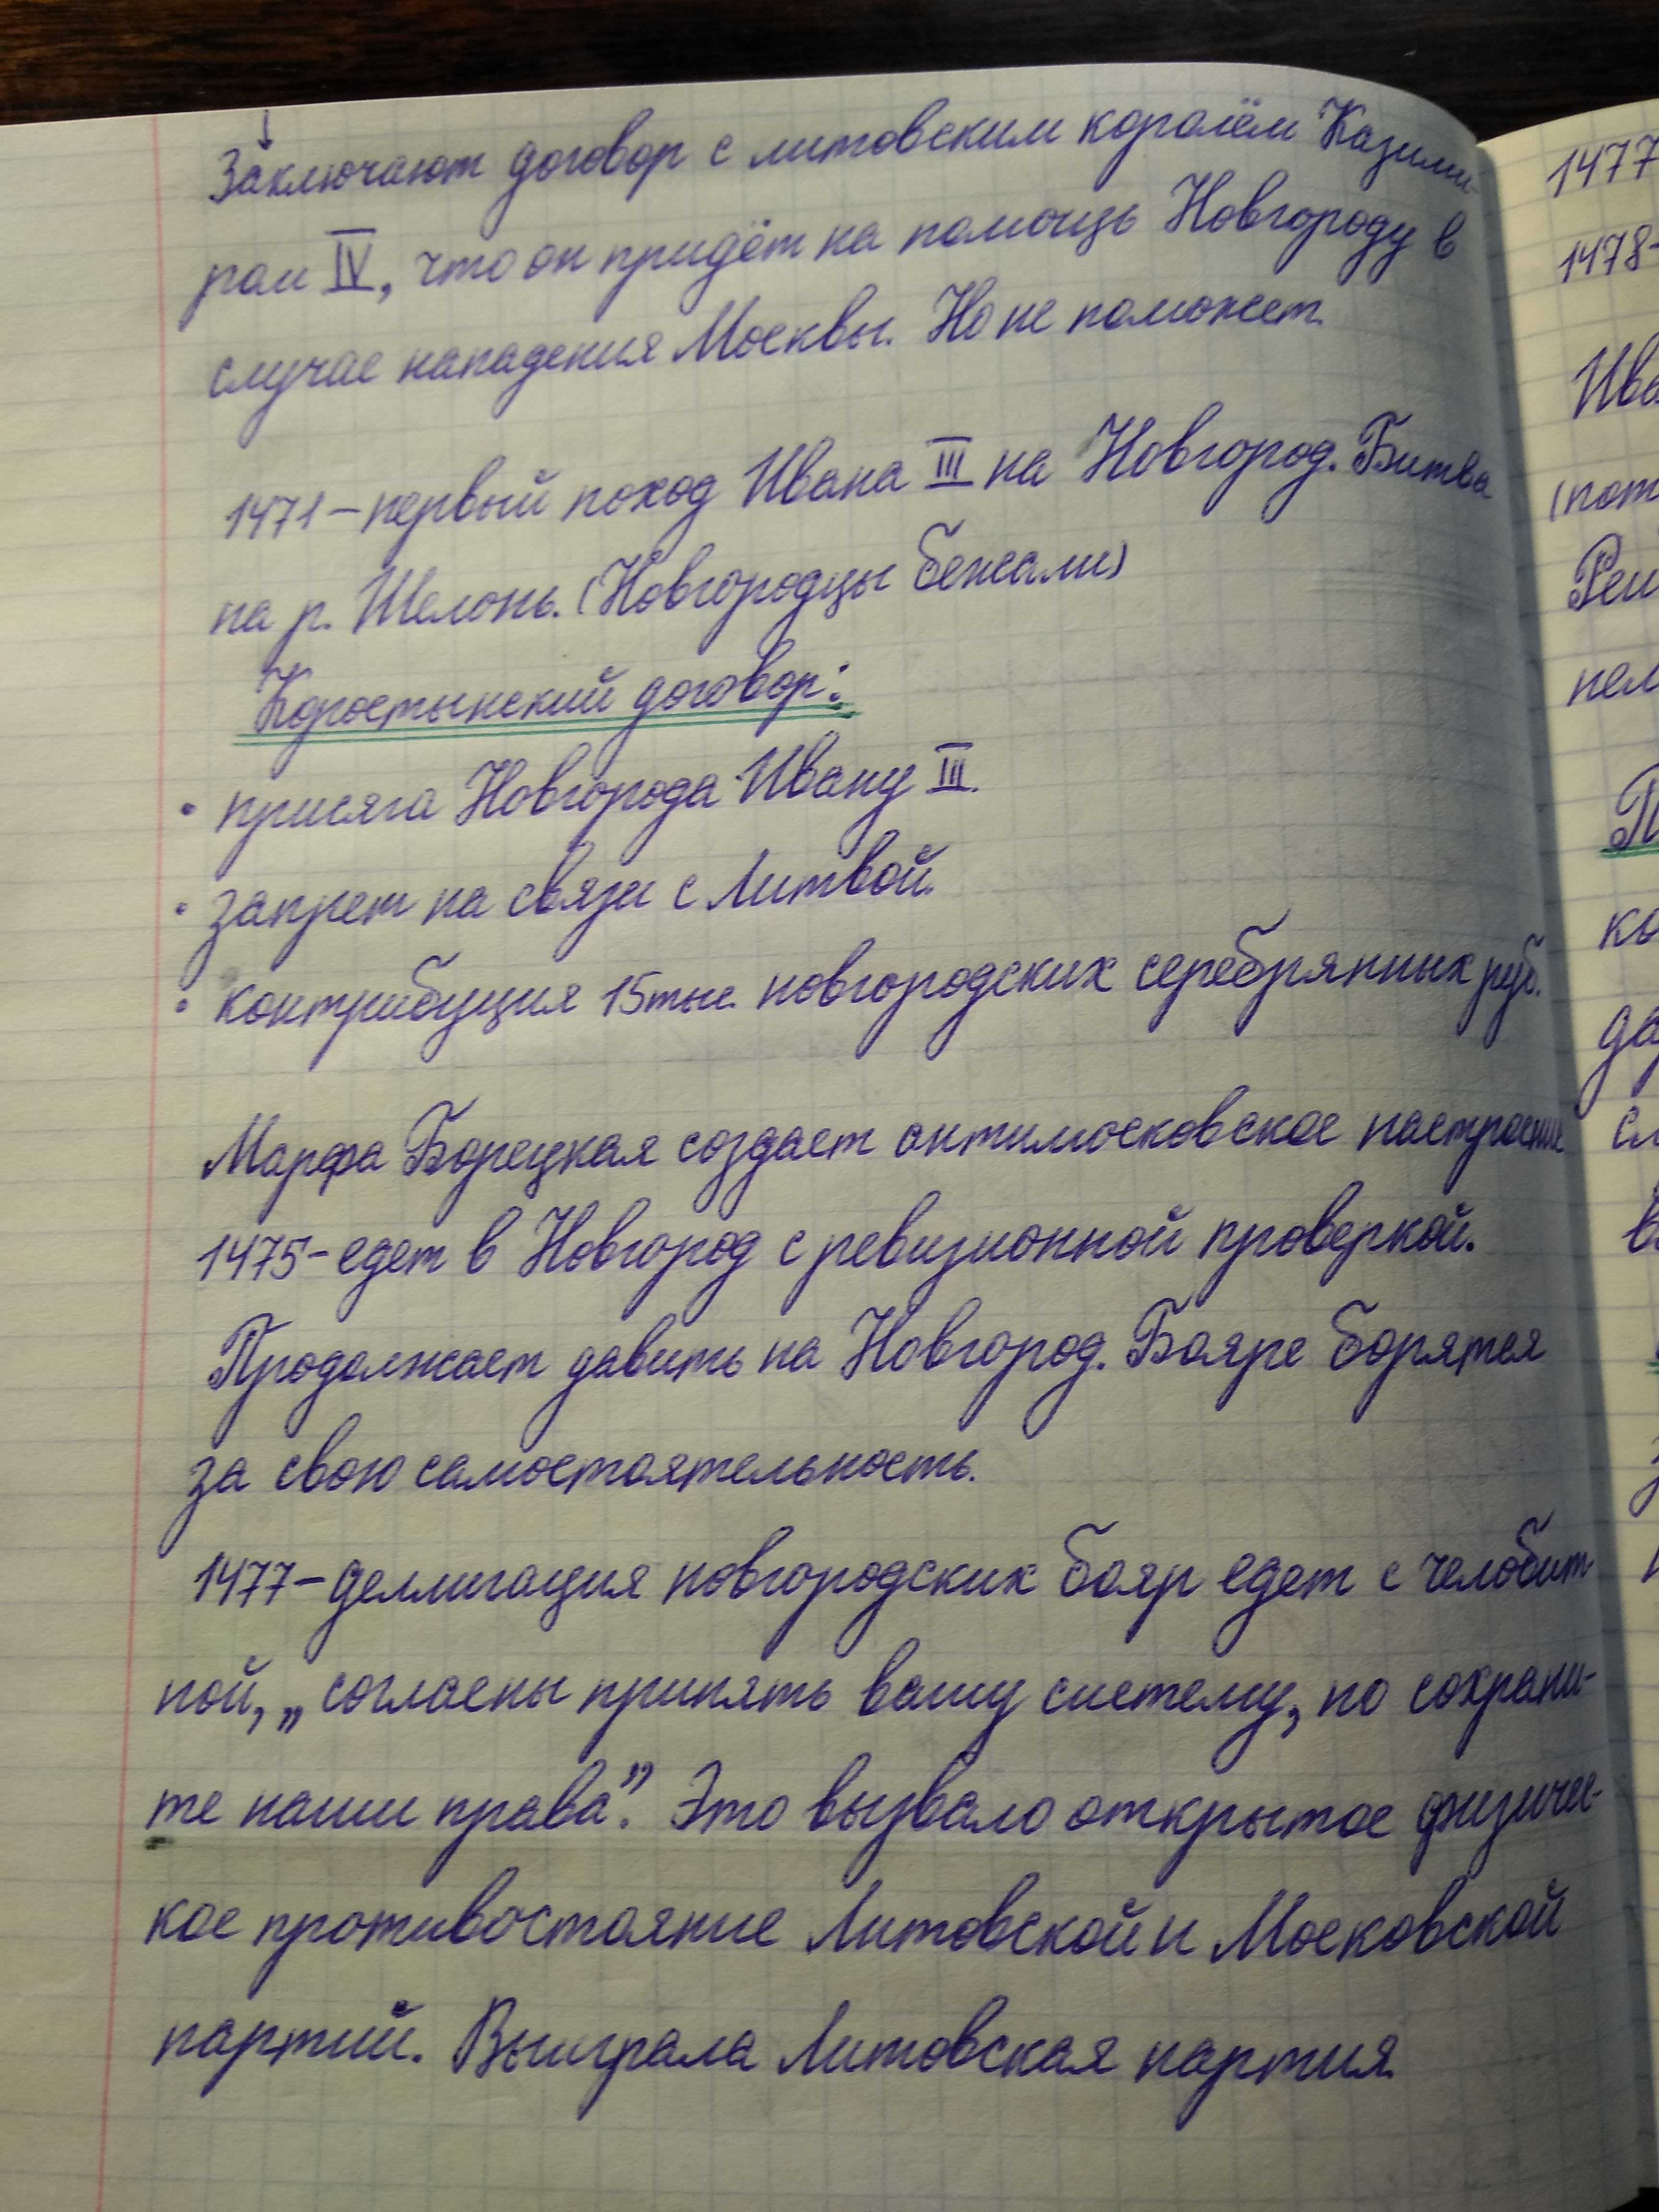 ↓
Заключают договор с литовским королём Казими-
ром IV, что он придёт на помощь Новгороду в
случае нападения Москвы. Но не поможет.
1471 – первый поход Ивана III на Новгород. Битва
на р. Шелонь. (Новгородцы бежали)
Коростынский договор:
• присяга Новгорода Ивану III.
• запрет на связи с Литвой.
• контрибуция 15 тыс. новгородских серебрянных руб.
Марфа Борецкая создает антимосковское настроение
1475 – едет в Новгород с ревизионной проверкой.
Продолжает давить на Новгород. Бояре борятся
за свою самостоятельность.
1477 – деллигация новгородских бояр едет с челобит
ной, „согласны принять вашу систему, но сохрани-
те наши права”. Это вызвало открытое физичес-
кое противостояние Литовской и Московской
партий. Выиграла Литовская партия.
1477
1478-
Ива
(пот
пел
П
ко
да
сл